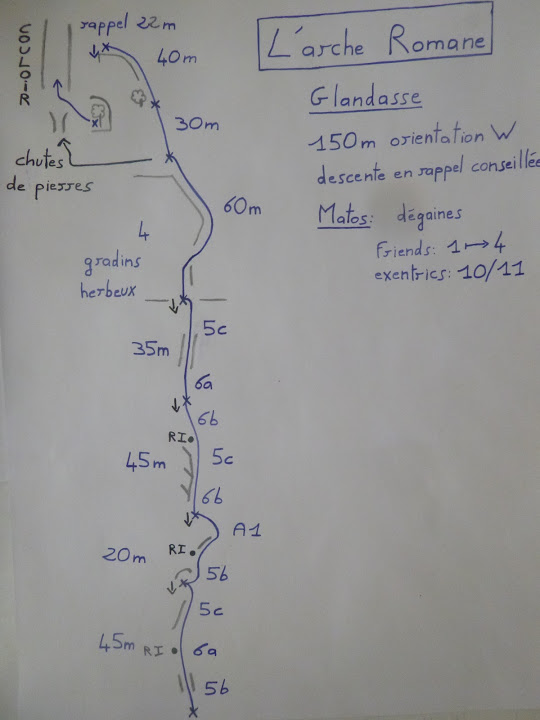 L'arche Romane
Glandasse
150m orientation W
descente en rappel conseillée
Matos: dégaines
Friends: 1 ↦ 4
exentrics: 10/11
rappel 22m
COULOIR
40m
30m
chutes
de pierres
60m
4
gradins
herbeux
5c
35m
6a
6b
RI
5c
45m
6b
A1
RI
20m
5b
5c
45m RI 6a
5b